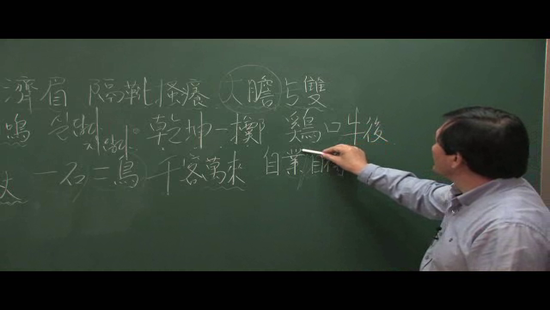 濟眉 隔靴搔癢 大膽与雙
鳴 乾坤一擲 鷄口牛後
丈 一石二鳥 千客萬來 自業自